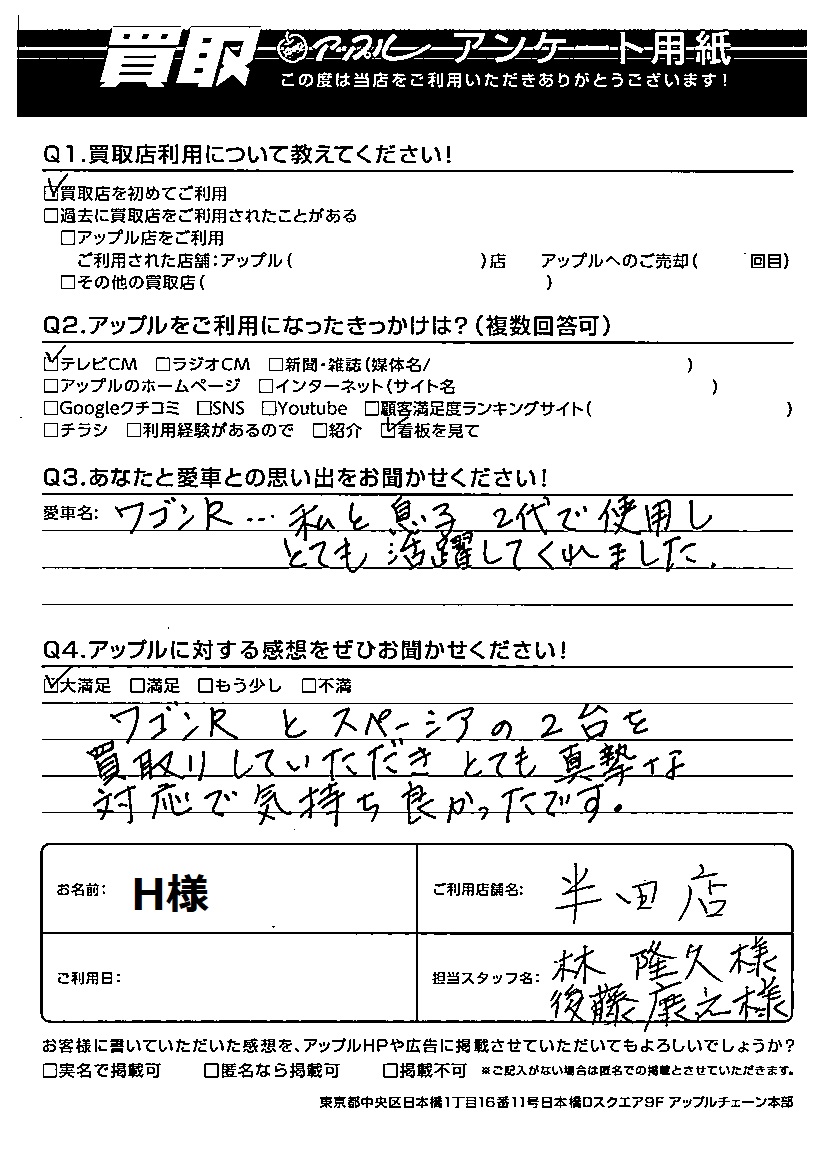 買取 アップル アンケート用紙
この度は当店をご利用いただきありがとうございます!
Q1.買取店利用について教えてください!
☑買取店を初めてご利用
□過去に買取店をご利用されたことがある
□アップル店をご利用
ご利用された店舗:アップル( )店 アップルへのご売却( 回目)
□その他の買取店( )
Q2.アップルをご利用になったきっかけは?(複数回答可)
☑テレビCM □ラジオCM □新聞・雑誌(媒体名/ )
□アップルのホームページ □インターネット(サイト名 )
□Googleクチコミ □SNS □Youtube □顧客満足度ランキングサイト( )
□チラシ □利用経験があるので □紹介 ☑看板を見て
Q3.あなたと愛車との思い出をお聞かせください!
愛車名: ワゴンR… 私と息子 2代で使用し
とても活躍してくれました.
Q4.アップルに対する感想をぜひお聞かせください!
☑大満足 □満足 □もう少し □不満
ワゴンRとスペーシアの2台を
買取りしていただきとても真摯な
対応で気持ち良かったです。
お名前: H様 ご利用店舗名: 半田店
ご利用日: 担当スタッフ名: 林 隆久様
後藤康之様
お客様に書いていただいた感想を、アップルHPや広告に掲載させていただいてもよろしいでしょうか?
□実名で掲載可 □匿名なら掲載可 □掲載不可 ※ご記入がない場合は匿名での掲載とさせていただきます。
東京都中央区日本橋1丁目16番11号日本橋Dスクエア9F アップルチェーン本部